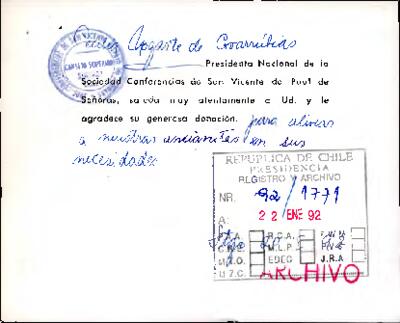 Ugarte de Covarrubias
Presidenta Nacional de la
Sociedad Conferencias de San Vicente de Paul de
Señoras, saluda muy atentamente a Ud. y le
agradece su generosa donación. para aliviar
a nuestras ancianitas en sus
necesidades
CONSEJO SUPERIOR
REPUBLICA DE CHILE
PRESIDENCIA
REGISTRO Y ARCHIVO
NR. 92/1771
A: 22 ENE 92
P.A.A. R.C.A. F.W.M.
C.B.E. M.L.P. P.V.S.
M.T.O. EDEC J.R.A.
M.Z.C.
ARCHIVO